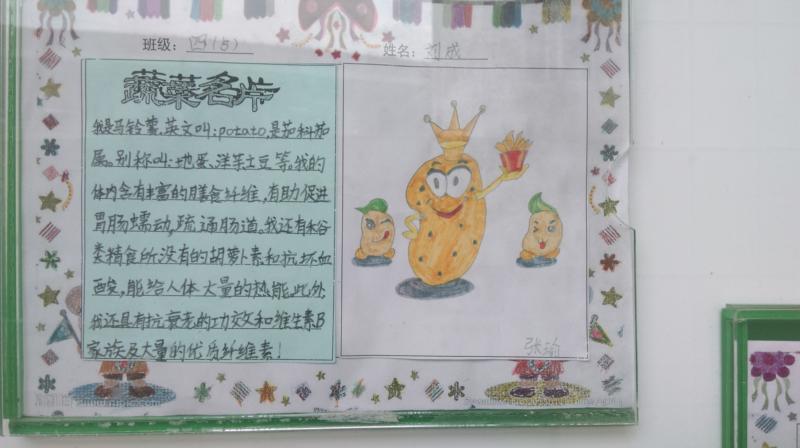 班级：四(5)
姓名：刘成
蔬菜名片
我是马铃薯,英文叫:potato,是茄科茄
属。别称叫:地蛋、洋芋土豆等。我的
体内含有丰富的膳食纤维,有助促进
胃肠蠕动,疏通肠道。我还有禾谷
类粮食所没有的胡萝卜素和抗坏血
酸,能给人体大量的热能。此外
我还具有抗衰老的功效和维生素B
家族及大量的优质纤维素!
张瑜